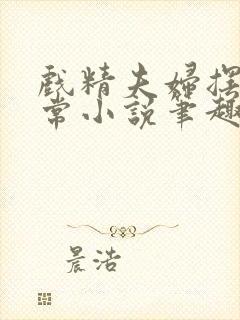 戲精夫婦擺
常小說筆趣
晨浩